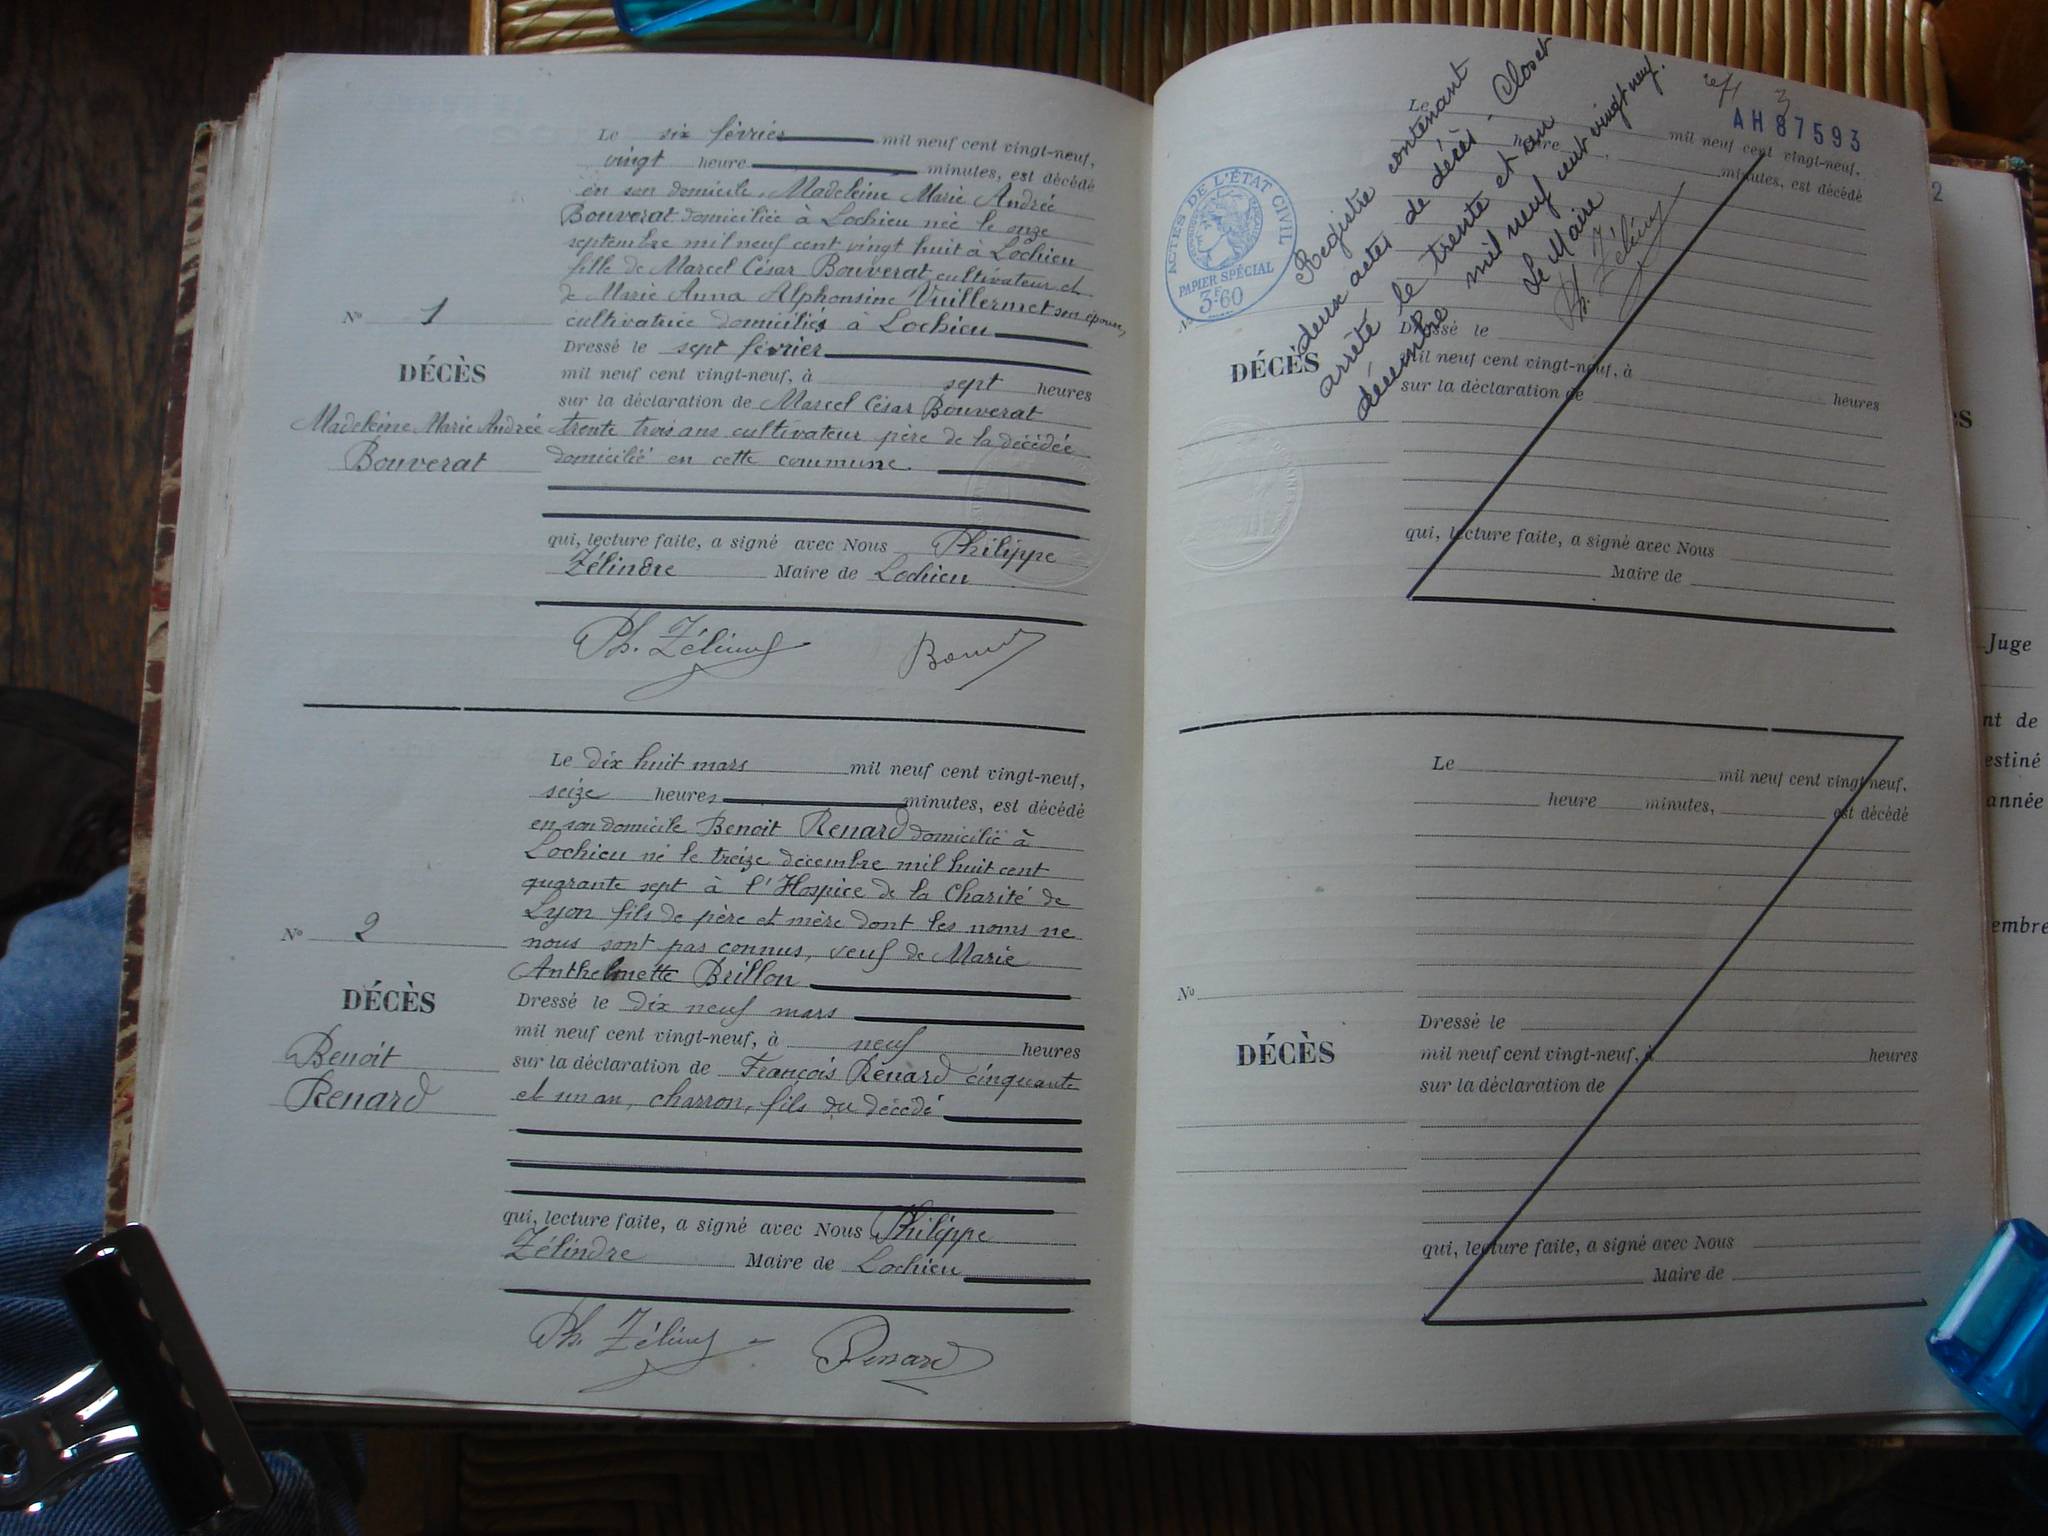 Le six février mil neuf cent vingt-neuf,
vingt heure minutes, est décédé
en son domicile, Madeleine Marie Andrée
Bouverat domiciliée à Lochieu née le onze
septembre mil neuf cent vingt huit à Lochieu
fille de Marcel César Bouverat cultivateur et
de Marie Anna Alphonsine Vuillermet son épouse,
cultivatrice domiciliés à Lochieu
Dressé le sept février
mil neuf cent vingt-neuf, à sept heures
sur la déclaration de Marcel César Bouverat
trente trois ans cultivateur père de la décédée
domicilié en cette commune.
qui, lecture faite, a signé avec Nous Philippe
Zélindre Maire de Lochieu
Nº 1
DÉCÈS
Madeleine Marie Andrée
Bouverat
Le dix huit mars mil neuf cent vingt-neuf,
seize heures minutes, est décédé
en son domicile Benoit Renard domicilié à
Lochieu né le treize décembre mil huit cent
quarante sept à l'Hospice de la Charité de
Lyon fils de père et mère dont les noms ne
nous sont pas connus, veuf de Marie
Anthelmette Brillon
Dressé le dix neuf mars
mil neuf cent vingt-neuf, à neuf heures
sur la déclaration de François Renard cinquante
et un an, charron, fils du décédé
qui, lecture faite, a signé avec Nous Philippe
Zélindre Maire de Lochieu
Renard
Nº 2
DÉCÈS
Benoit
Renard
AH 87593
ACTES DE L'ÉTAT CIVIL
PAPIER SPÉCIAL
3F60
Registre contenant
deux actes de décès - Closet
arrêté le trente et un
décembre mil neuf cent vingt neuf.
Le Maire
Le
mil neuf cent vingt-neuf,
heure minutes, est décédé
Nº
DÉCÈS
Dressé le
mil neuf cent vingt-neuf, à heures
sur la déclaration de
qui, lecture faite, a signé avec Nous
Maire de
Le mil neuf cent vingt-neuf,
heure minutes, est décédé
Nº
DÉCÈS
Dressé le
mil neuf cent vingt-neuf, à heures
sur la déclaration de
qui, lecture faite, a signé avec Nous
Maire de
2
Juge
de
année